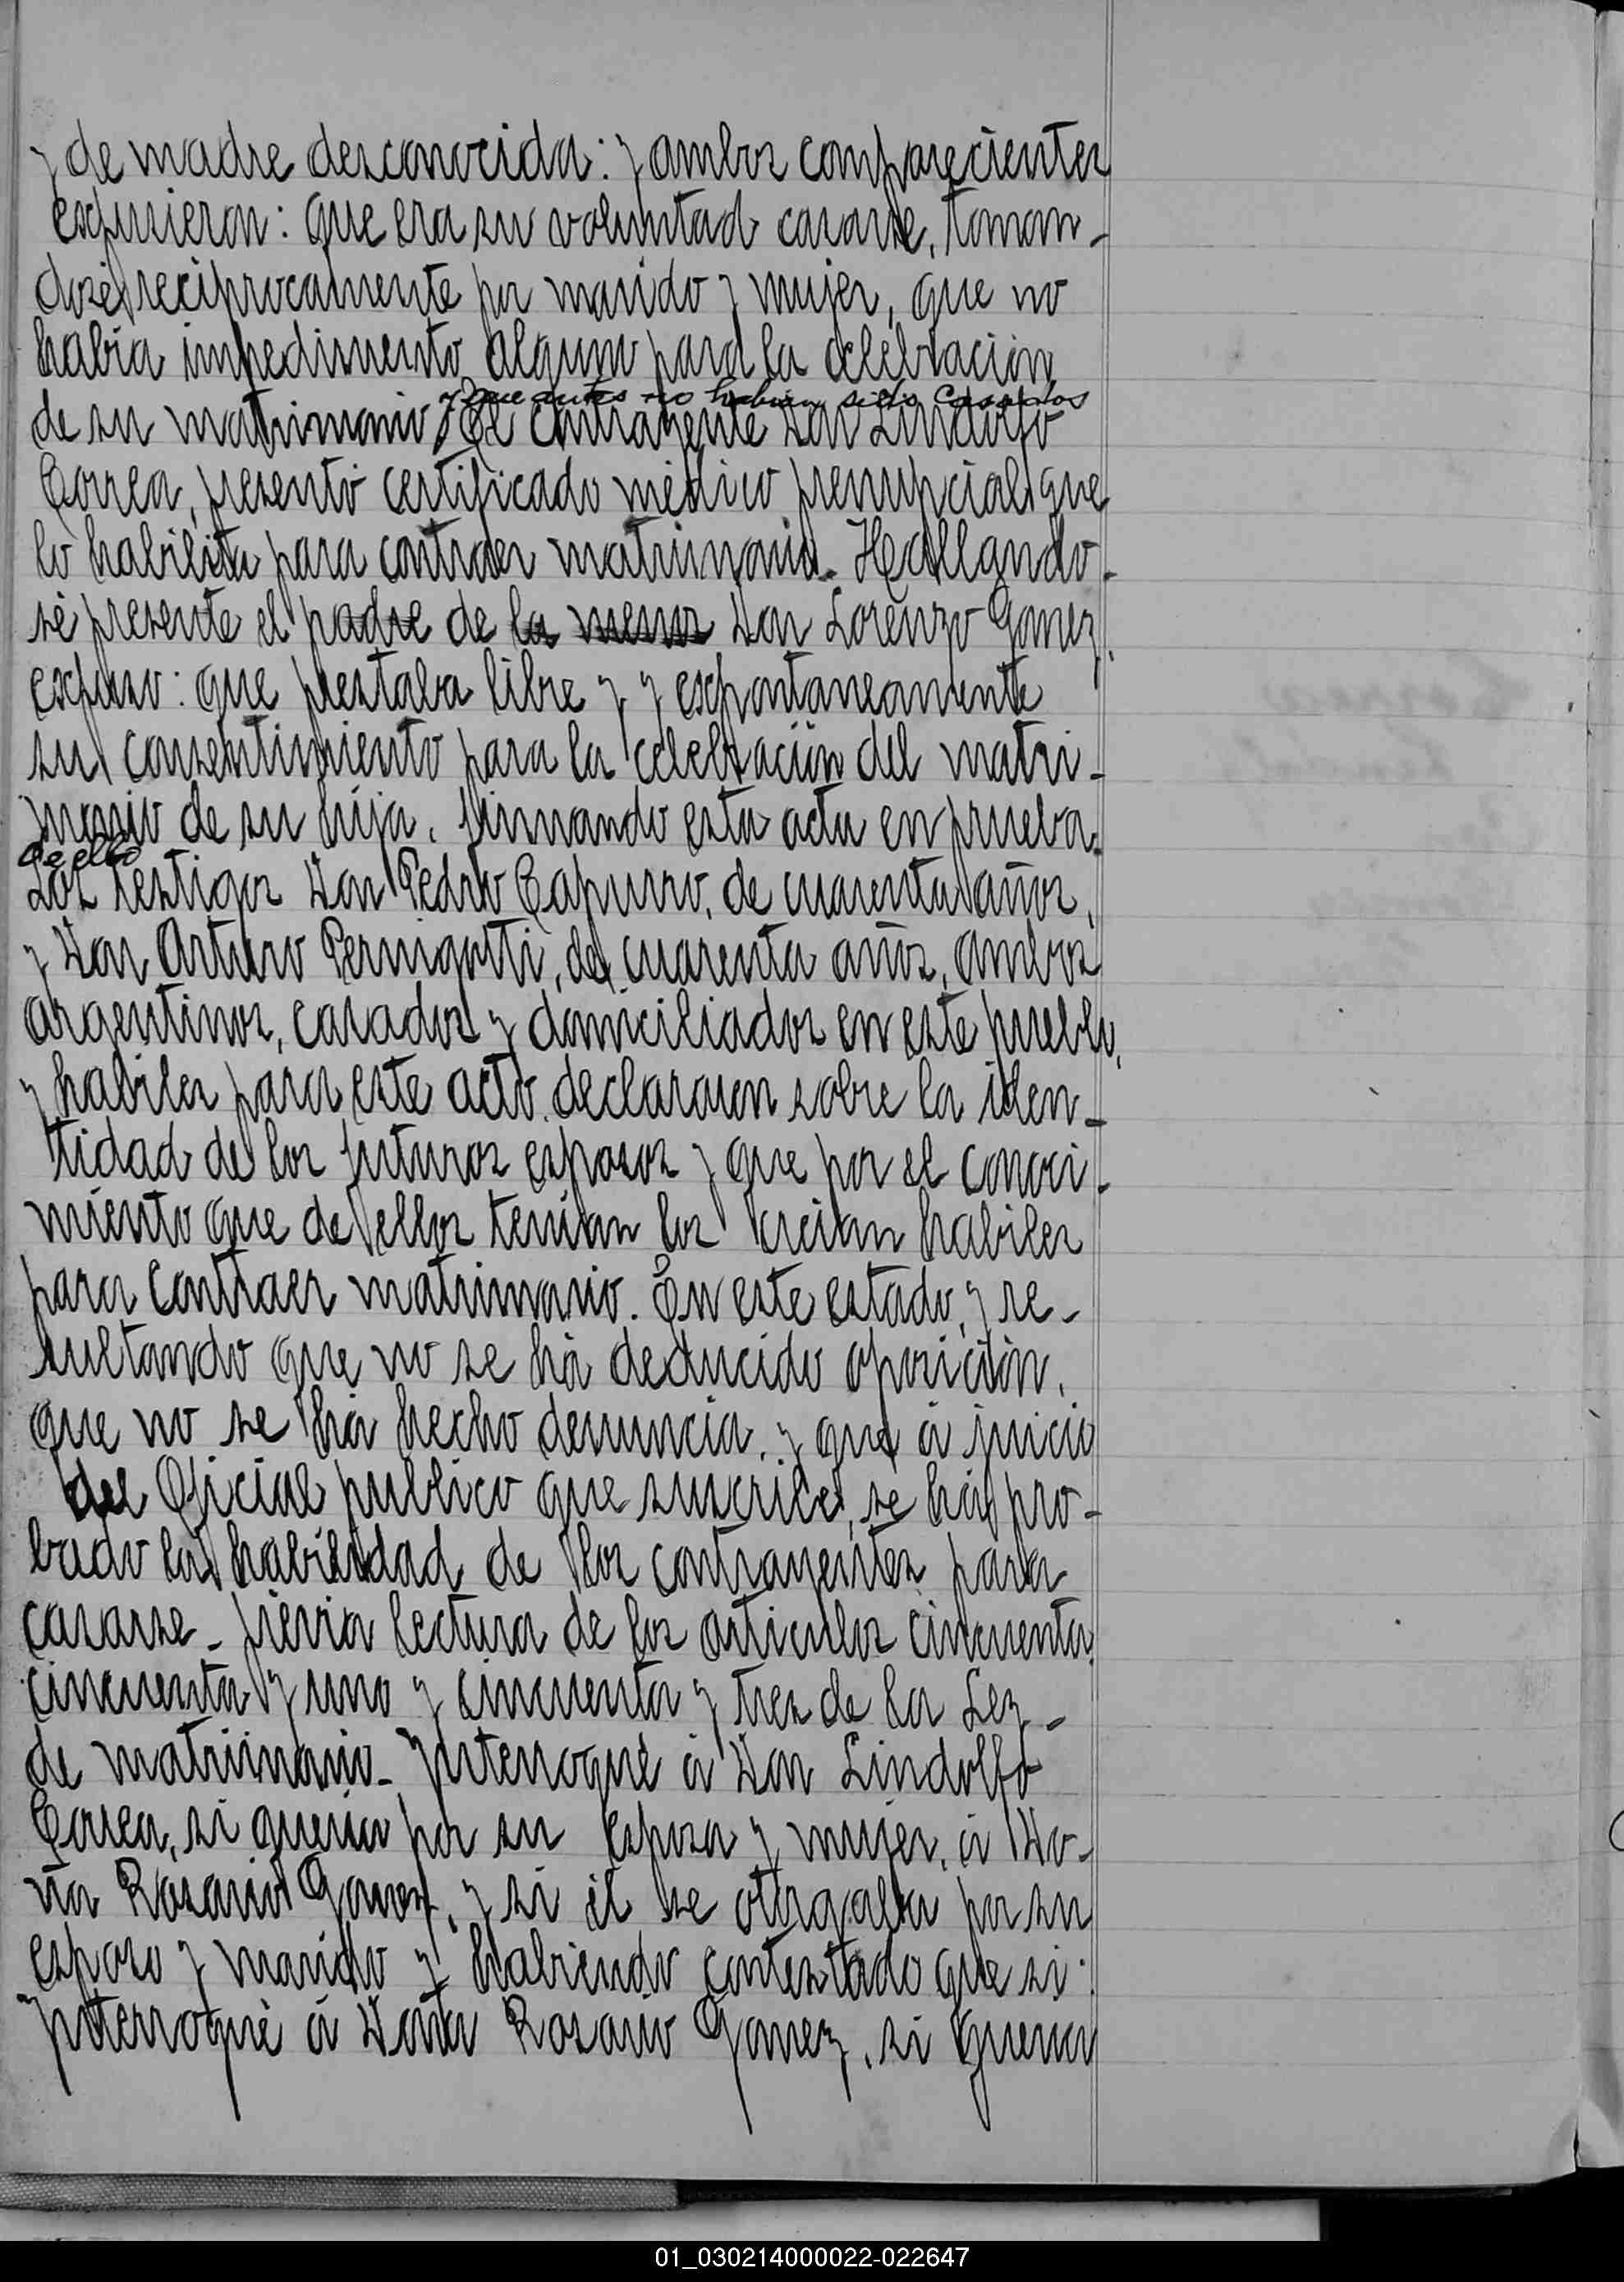 y de madre desconocida: y ambos comparecientes
expusieron: que era su voluntad casarse, toman-
dose reciprocamente por marido y mujer, que no
habia impedimento alguno para la celebración
y que antes no habian sido casados
de su matrimonio. El contrayente Don Lindolfo
Correa, presentó certificado médico prenupcial que
lo habilita para contraer matrimonio. Hallando-
se presente el padre de la menor Don Lorenzo Gomez,
expuso: que prestaba libre y y espontaneamente
su consentimiento para la celebración del matri-
monio de su hija, firmando esta acta en prueba.
de ello
Los testigos Don Pedro Capurro, de cuarenta años,
y Don Arturo Pernigotti, de cuarenta años, ambos
argentinos, casados y domiciliados en este pueblo,
y habiles para este acto, declararon sobre la iden-
tidad de los futuros esposos y que por el conoci-
miento que de ellos tenian los creian habiles
para contraer matrimonio. En este estado, y re-
sultando que no se há deducido oposición,
que no se há hecho denuncia, y que á juicio
del Oficial publico que suscribe, se há pro-
bado la habilidad de los contrayentes para
casarse - previa lectura de los articulos cincuenta,
cincuenta y uno y cincuenta y tres de la Ley -
de matrimonio - Interrogué á Don Lindolfo
Correa, si queria por su esposa y mujer, á Do-
ña Rosario Gomez, y si él se otorgaba por su
esposo y marido y habiendo contestado que si:
Interrogué á Doña Rosario Gomez, si queria
01_030214000022-022647